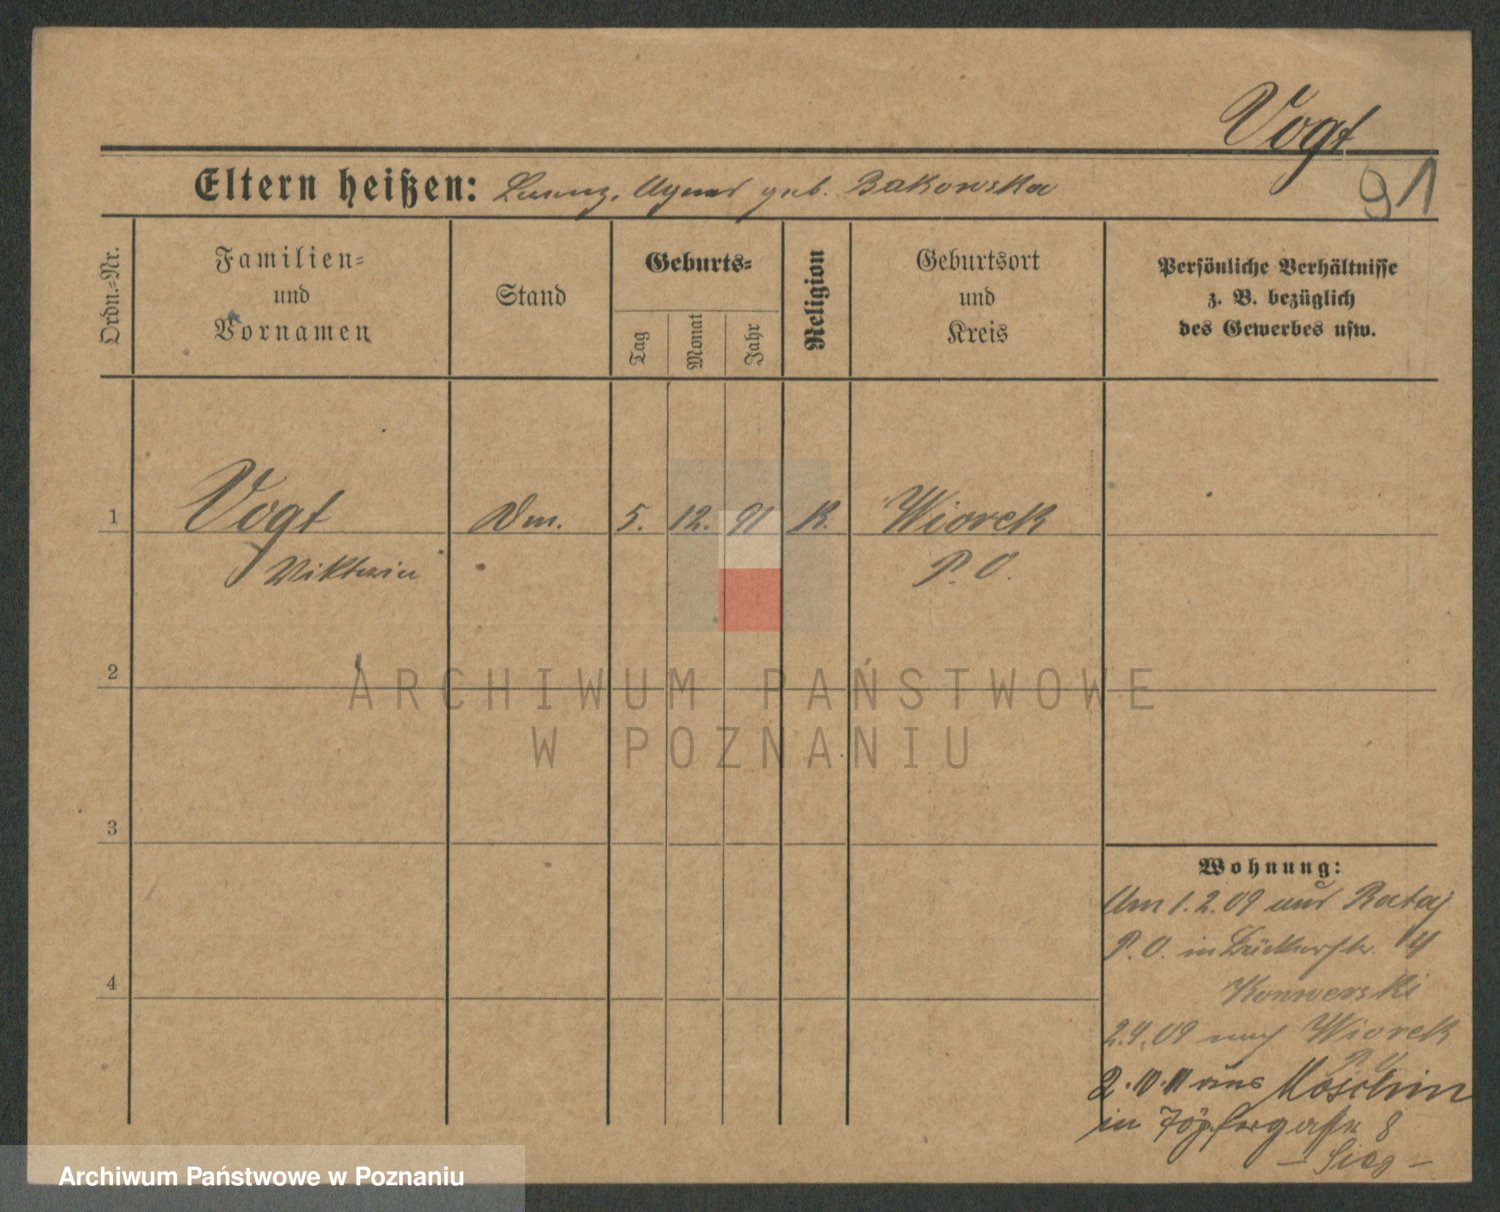 Vogt
91
Eltern heißen: Lorenz, Agnes geb. Bakowska
Ordn.-Nr.
Familien-
und
Vornamen
Stand
Geburts-
Tag
Monat
Jahr
Religion
Geburtsort
und
Kreis
Persönliche Verhältnisse
z. B. bezüglich
des Gewerbes usw.
1
Vogt
Dm.
5.
12.
91
K.
Wiorek
Viktoria
P. O.
2
ARCHIWUM PAŃSTWOWE
W POZNANIU
3
Wohnung:
Am 1.2.09 aus Rataj
P. O. in 14
Konwerski
4
2.4.09 nach Wiorek
P. O.
2.10.11 aus Moschin
in Töpfergasse 8
Archiwum Państwowe w Poznaniu